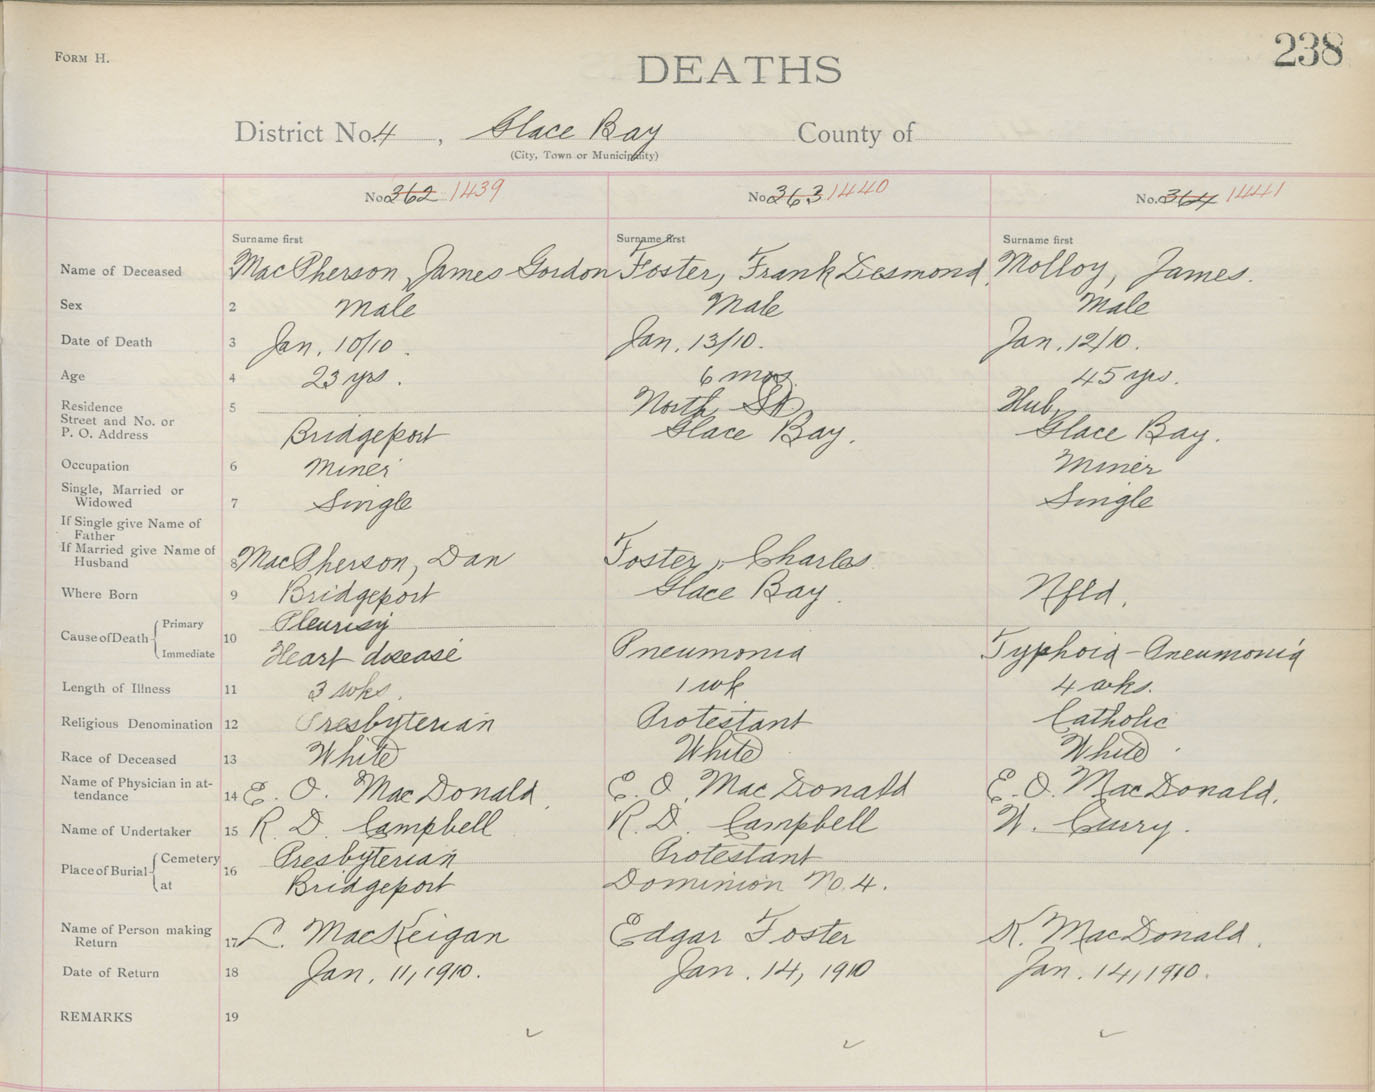 FORM H.
238
DEATHS
District No. 4, Glace Bay County of
(City, Town or Municipality)
No. 362 1439 No. 363 1440 No. 364 1441
Surname first Surname first Surname first
Name of Deceased MacPherson, James Gordon Foster, Frank Desmond Molloy, James.
Sex 2 Male Male Male
Date of Death 3 Jan. 10/10. Jan. 13/10. Jan. 12/10.
Age 4 23 yrs. 6 mos. 45 yrs.
Residence 5 North St. Hub,
Street and No. or
P. O. Address Bridgeport Glace Bay. Glace Bay.
Occupation 6 Miner Miner
Single, Married or
Widowed 7 Single Single
If Single give Name of
Father
If Married give Name of
Husband 8 MacPherson, Dan Foster, Charles
Where Born 9 Bridgeport Glace Bay. Nfld.
Cause of Death Primary 10 Pleurisy
Immediate Heart disease Pneumonia Typhoid-Pneumonia
Length of Illness 11 3 wks. 1 wk 4 wks.
Religious Denomination 12 Presbyterian Protestant Catholic
Race of Deceased 13 White White White
Name of Physician in at-
tendance 14 E. O. MacDonald. E. O. MacDonald E. O. MacDonald.
Name of Undertaker 15 R. D. Campbell R. D. Campbell W. Curry.
Place of Burial Cemetery 16 Presbyterian Protestant
at Bridgeport Dominion No. 4.
Name of Person making
Return 17 L. MacKeigan Edgar Foster K. MacDonald.
Date of Return 18 Jan. 11, 1910. Jan. 14, 1910 Jan. 14, 1910.
REMARKS 19